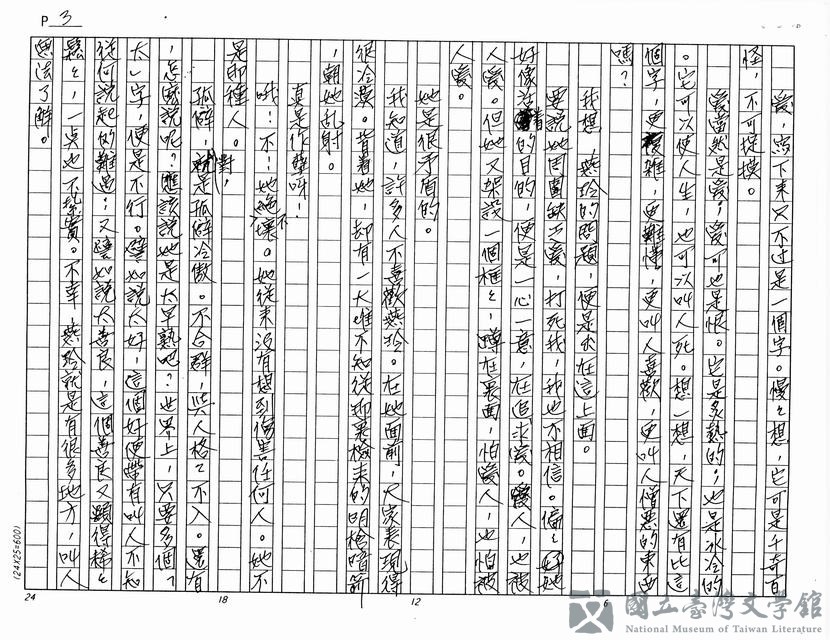 P 3
愛，寫下來只不过是一個字。慢々想，它可是千奇百
怪，不可捉摸。
愛當然是愛；愛可也是恨。它是炙熱的；也是冰冷的
。它可以使人生，也可以叫人死。想一想，天下還有比這
個字，更複雜，更難懂，更叫人喜歡，更叫人憎惡的東西
嗎？
我想，燕玲的問題，便是出在這上面。
要說她周圍缺乏愛，打死我，我也不相信。偏々她
好像活着的目的，便是一心一意，在追求愛。愛人，也被
人愛。但她又架設一個框々，蹲在裏面，怕愛人，也怕被
人愛。
她是很矛盾的。
我知道，許多人不喜歡燕玲。在她面前，大家表現得
很冷漠。背着她，却有一大堆不知從那裏檢來的明槍暗箭
，朝她乱射。
真是作孽啊！
哦！不！她絕不壞。她從来沒有想到傷害任何人。她不
是那種人。
孤僻，對，就是孤僻冷傲。不合群，與人格々不入。還有
，怎麽説呢？應該說她是太早熟吧？世界上，只要多個「
太」字，便是不行。譬如說太好，這個好便帶有叫人不知
從何說起的難過；又譬如說太善良，這個善良又顯得稀々
鬆々，一点也不紮實。不幸，燕玲就是有很多地方，叫人
無法了解。
24
18
12
6
(24X25=600)
國立臺灣文學館
National Museum of Taiwan Literature